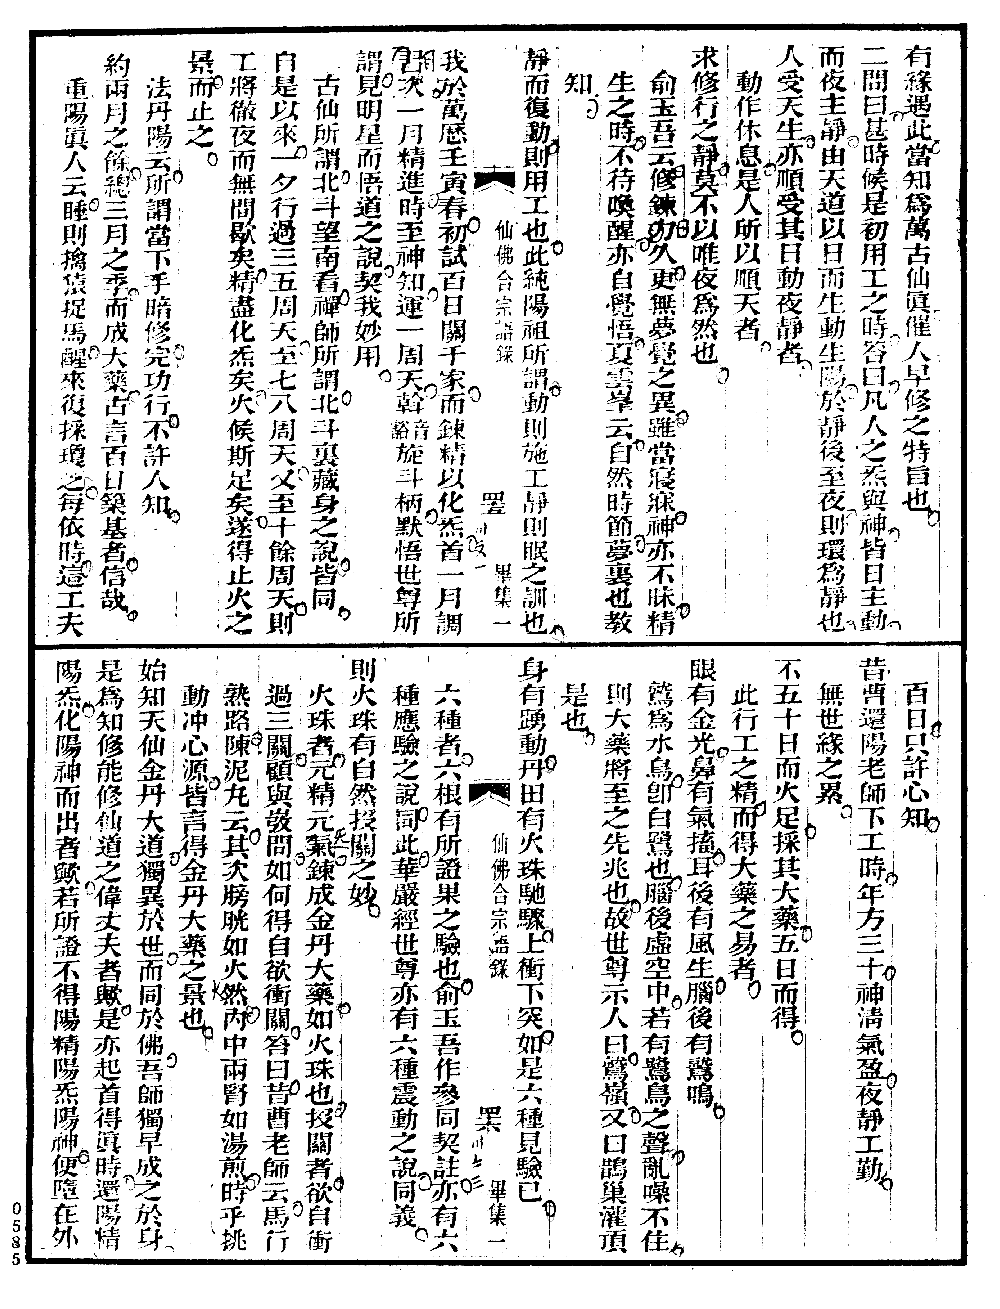 有緣遇此當知爲萬古仙眞催人早修之特旨也
二問曰甚時候是初用工之時答曰凡人之炁與神皆日主動
而夜主靜由天道以日而生動生陽於靜後至夜則環爲靜也
人受天生亦順受其日動夜靜者
動作休息是人所以順天者
求修行之靜莫不以唯夜爲然也
俞玉吾云修鍊功久更無夢覺之異雖當寢寐神亦不昧精
生之時不待喚醒亦自覺悟夏雲峯云自然時節夢裏也教
知
靜而復動則用工也此純陽祖所謂動則施工靜則眠之訓也
仙佛合宗語錄 畢集一
我於萬歷壬寅春初試百日關于家而鍊精以化炁首一月調
習次一月精進時至神知運一周天斡音豁旋斗柄默悟世尊所
謂見明星而悟道之說契我妙用
古仙所謂北斗望南看禪師所謂北斗裏藏身之說皆同
自是以來一夕行過三五周天至七八周天又至十餘周天則
工將徹夜而無間歇矣精盡化炁矣火候斯足矣遂得止火之
景而止之
法丹陽云所謂當下手暗修完功行不許人知
約兩月之餘總三月之季而成大藥古言百日築基者信哉
重陽眞人云睡則擒猿捉馬醒來復採瓊之每依時這工夫
百日只許心知
昔曹還陽老師下工時年方三十神清氣盈夜靜工勤
無世緣之累
不五十日而火足採其大藥五日而得
此行工之精而得大藥之易者
眼有金光鼻有氣搐耳後有風生腦後有鷲鳴
鷲爲水鳥卽白鷺也腦後虛空中若有鷺鳥之聲亂噪不住
則大藥將至之先兆也故世尊示人曰鷲嶺又曰鵲巢灌頂
是也
身有踴動丹田有火珠馳驟上衝下突如是六種見驗已
仙佛合宗語錄 畢集一
六種者六根有所證果之驗也俞玉吾作參同契註亦有六
種應驗之說同此華嚴經世尊亦有六種震動之說同義
則火珠有自然投關之妙
火珠者元精元氣鍊成金丹大藥如火珠也投關者欲自衝
過三關顧與敔問如何得自欲衝關答曰昔曹老師云馬行
熟路陳泥丸云其次膀胱如火然內中兩腎如湯煎時乎挑
動冲心源皆言得金丹大藥之景也
始知天仙金丹大道獨異於世而同於佛吾師獨早成之於身
是爲知修能修仙道之偉丈夫者歟是亦起首得眞時還陽精
陽炁化陽神而出者歟若所證不得陽精陽炁陽神便墮在外
0585